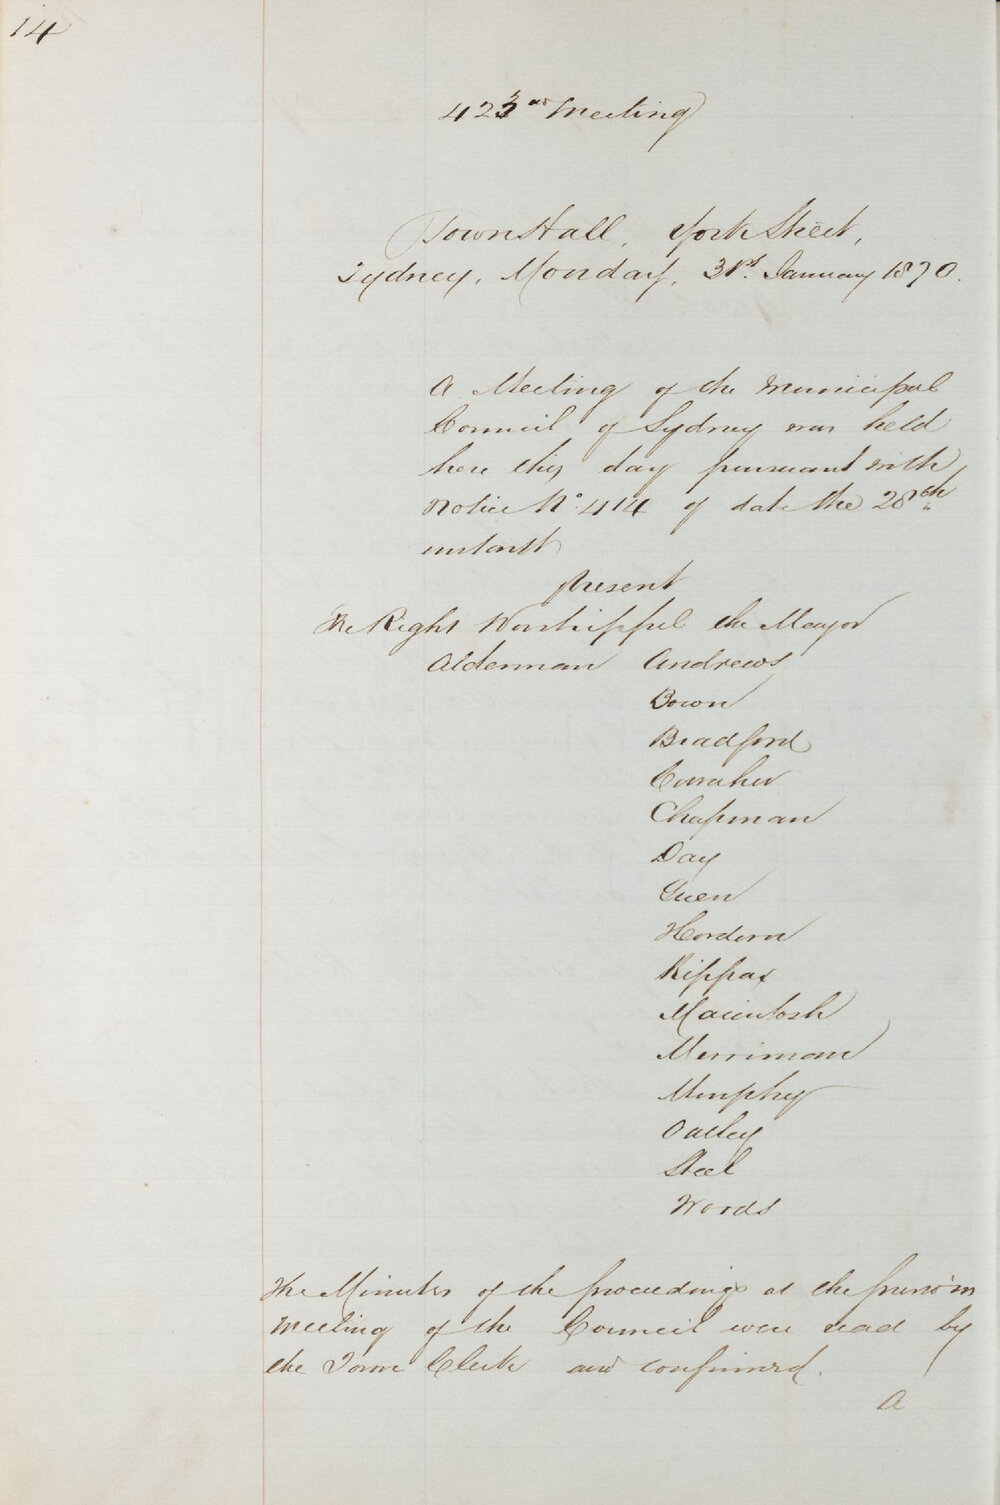 14
423rd Meeting
Town Hall, York Street,
Sydney, Monday, 31st. January 1870.
A Meeting of the Municipal
Council of Sydney was held
here this day pursuant with
Notice No. 414 of date the 28th
instant
Present
The Right Worshipful the Mayor
Alderman Andrews
Bown
Bradford
Carraher
Chapman
Day
Green
Hordern
Kippax
Macintosh
Merriman
Murphy
Oatley
Steel
Woods
The Minutes of the proceedings at the previous
Meeting of the Council were read by
the Town Clerk and confirmed.
A